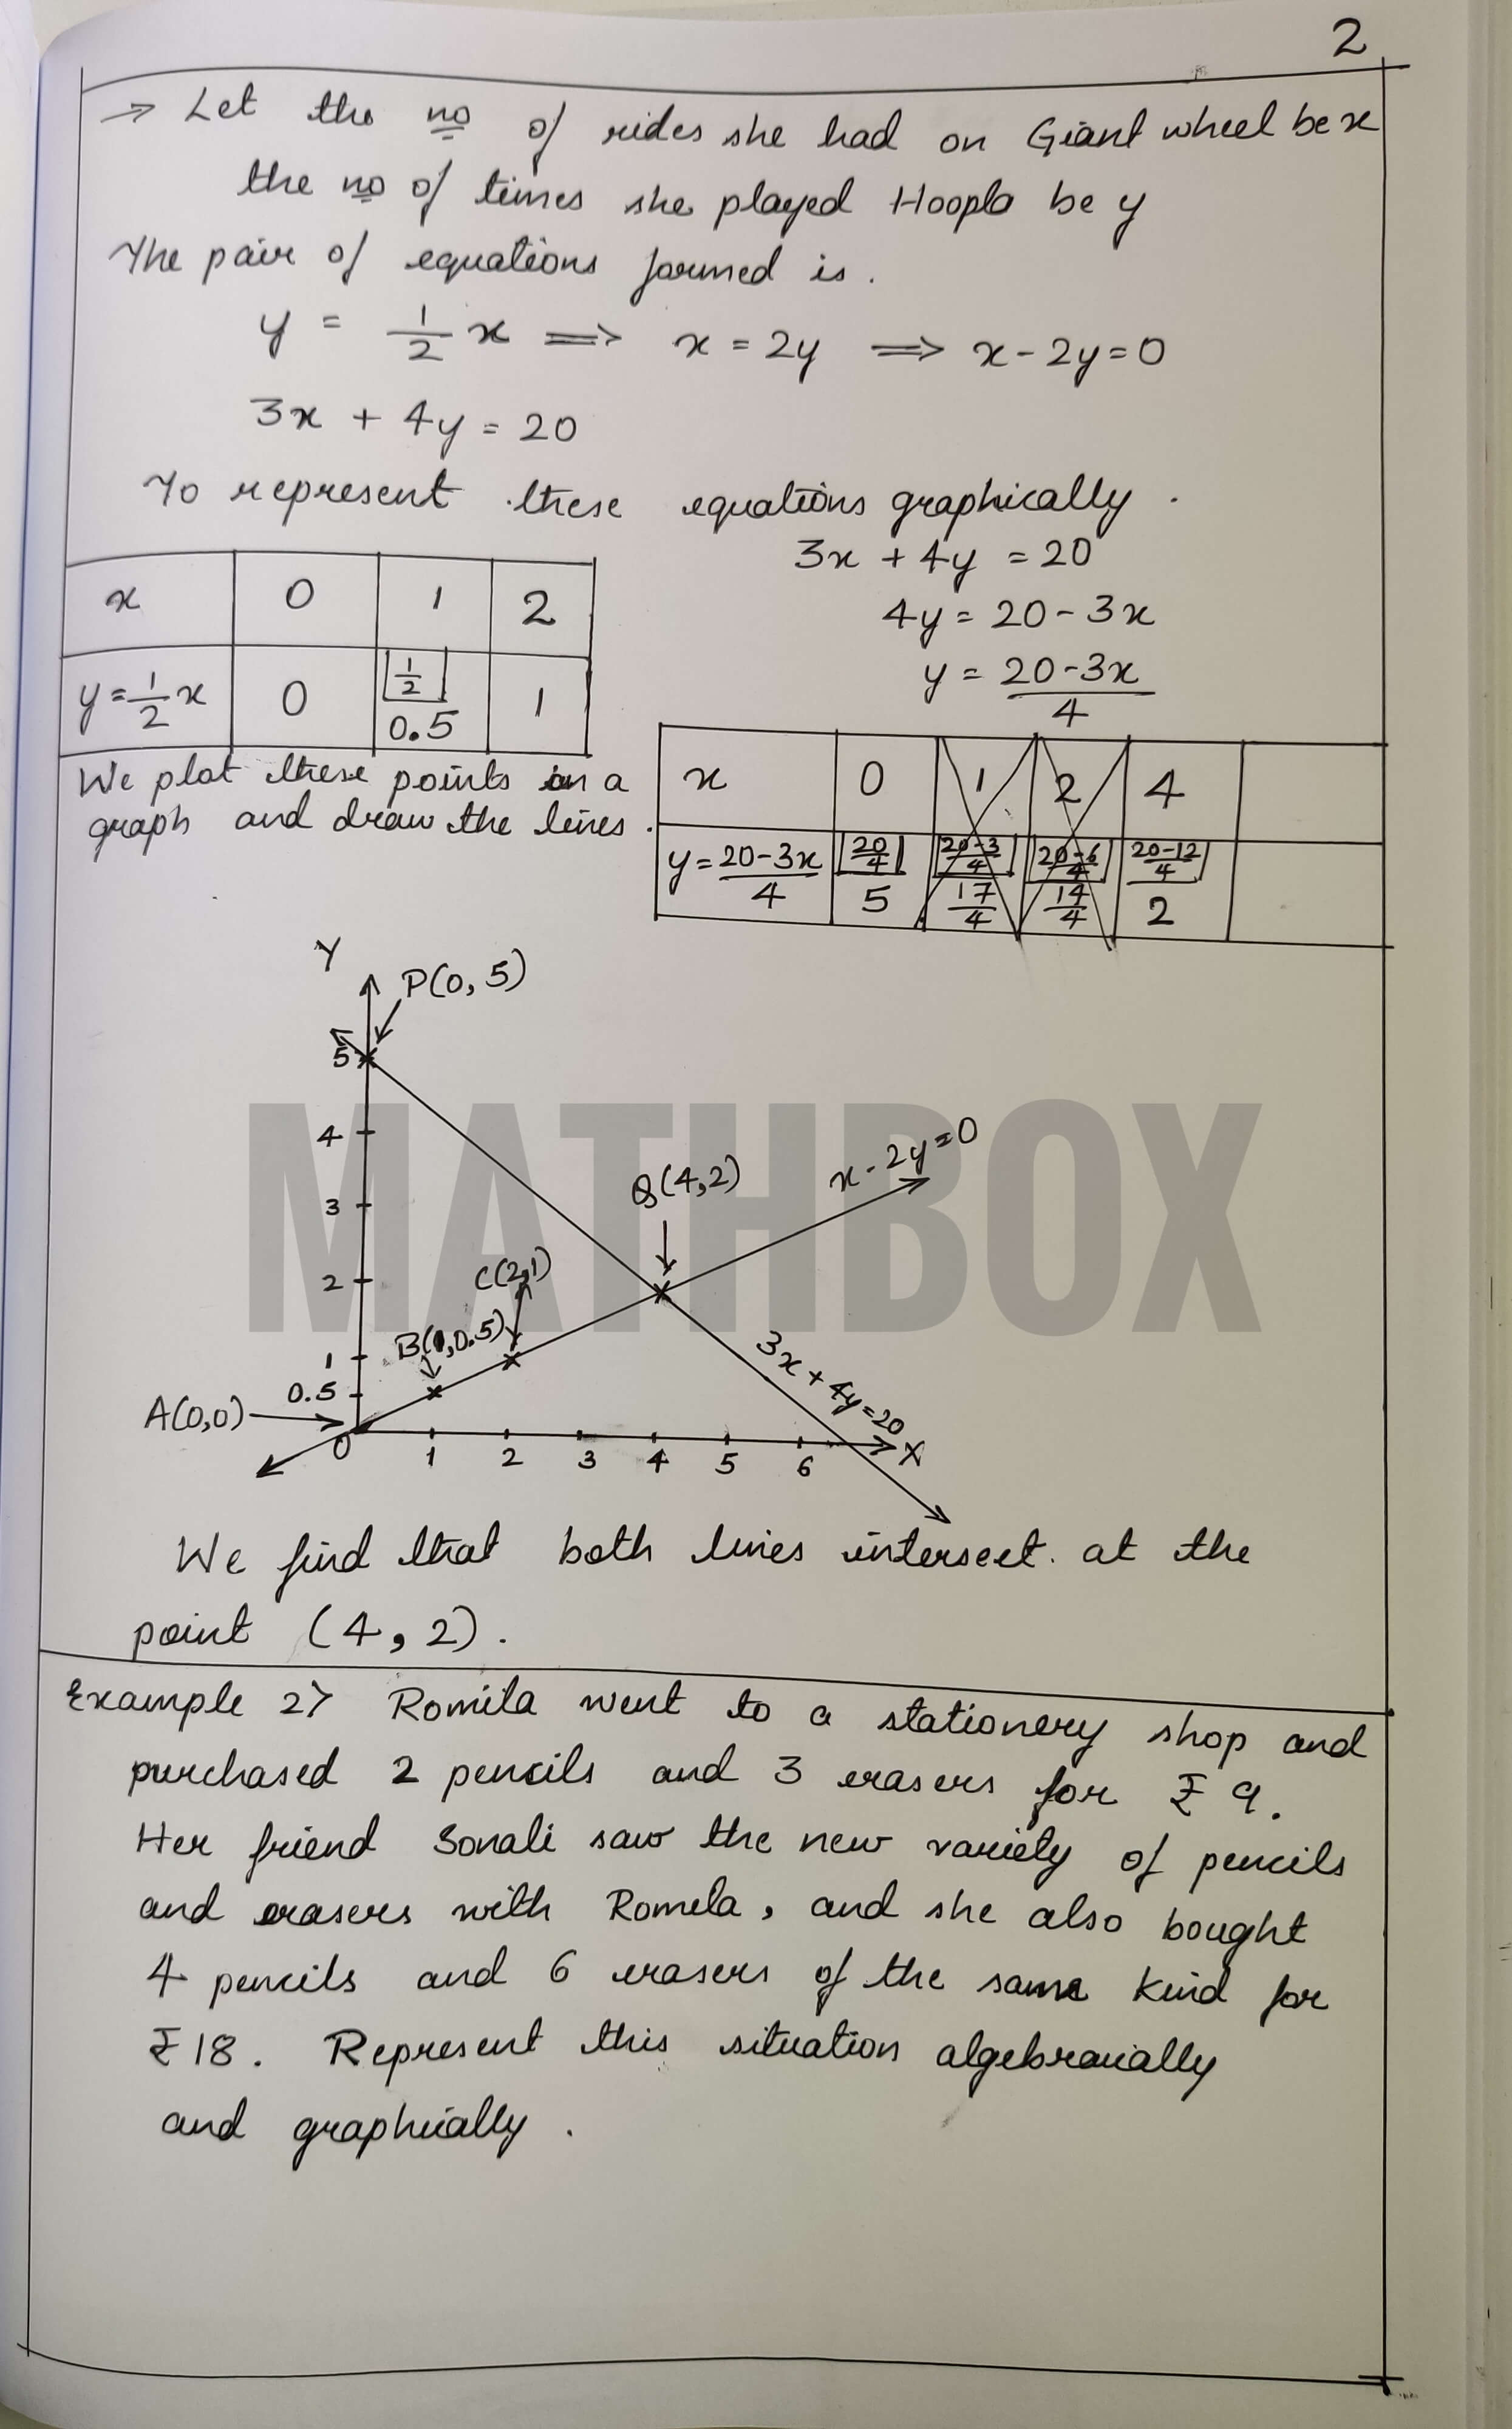 2
→ Let the no of rides she had on Giant wheel be x
the no of times she played Hoopla be y
The pair of equations formed is.
y = 1/2 x ⟹ x = 2y ⟹ x - 2y = 0
3x + 4y = 20
To represent these equations graphically.
3x + 4y = 20
4y = 20 - 3x
y = 20-3x/4
x 0 1 2
y = 1/2 x 0 1/2 0.5 1
We plot these points on a
graph and draw the lines.
x 0 1 2 4
y = 20-3x/4 20/4 20-3/4 20-6/4 20-12/4
5 17/4 14/4 2
Y
P(0, 5)
5
4
x - 2y = 0
Q(4,2)
3
C(2,1)
2
B(1,0.5)
1
3x + 4y = 20
0.5
A(0,0)
0 1 2 3 4 5 6 X
MATHBOX
We find that both lines intersect at the
point (4, 2).
Example 2> Romita went to a stationery shop and
purchased 2 pencils and 3 erasers for ₹ 9.
Her friend Sonali saw the new variety of pencils
and erasers with Romela, and she also bought
4 pencils and 6 erasers of the same kind for
₹ 18. Represent this situation algebraically
and graphically.